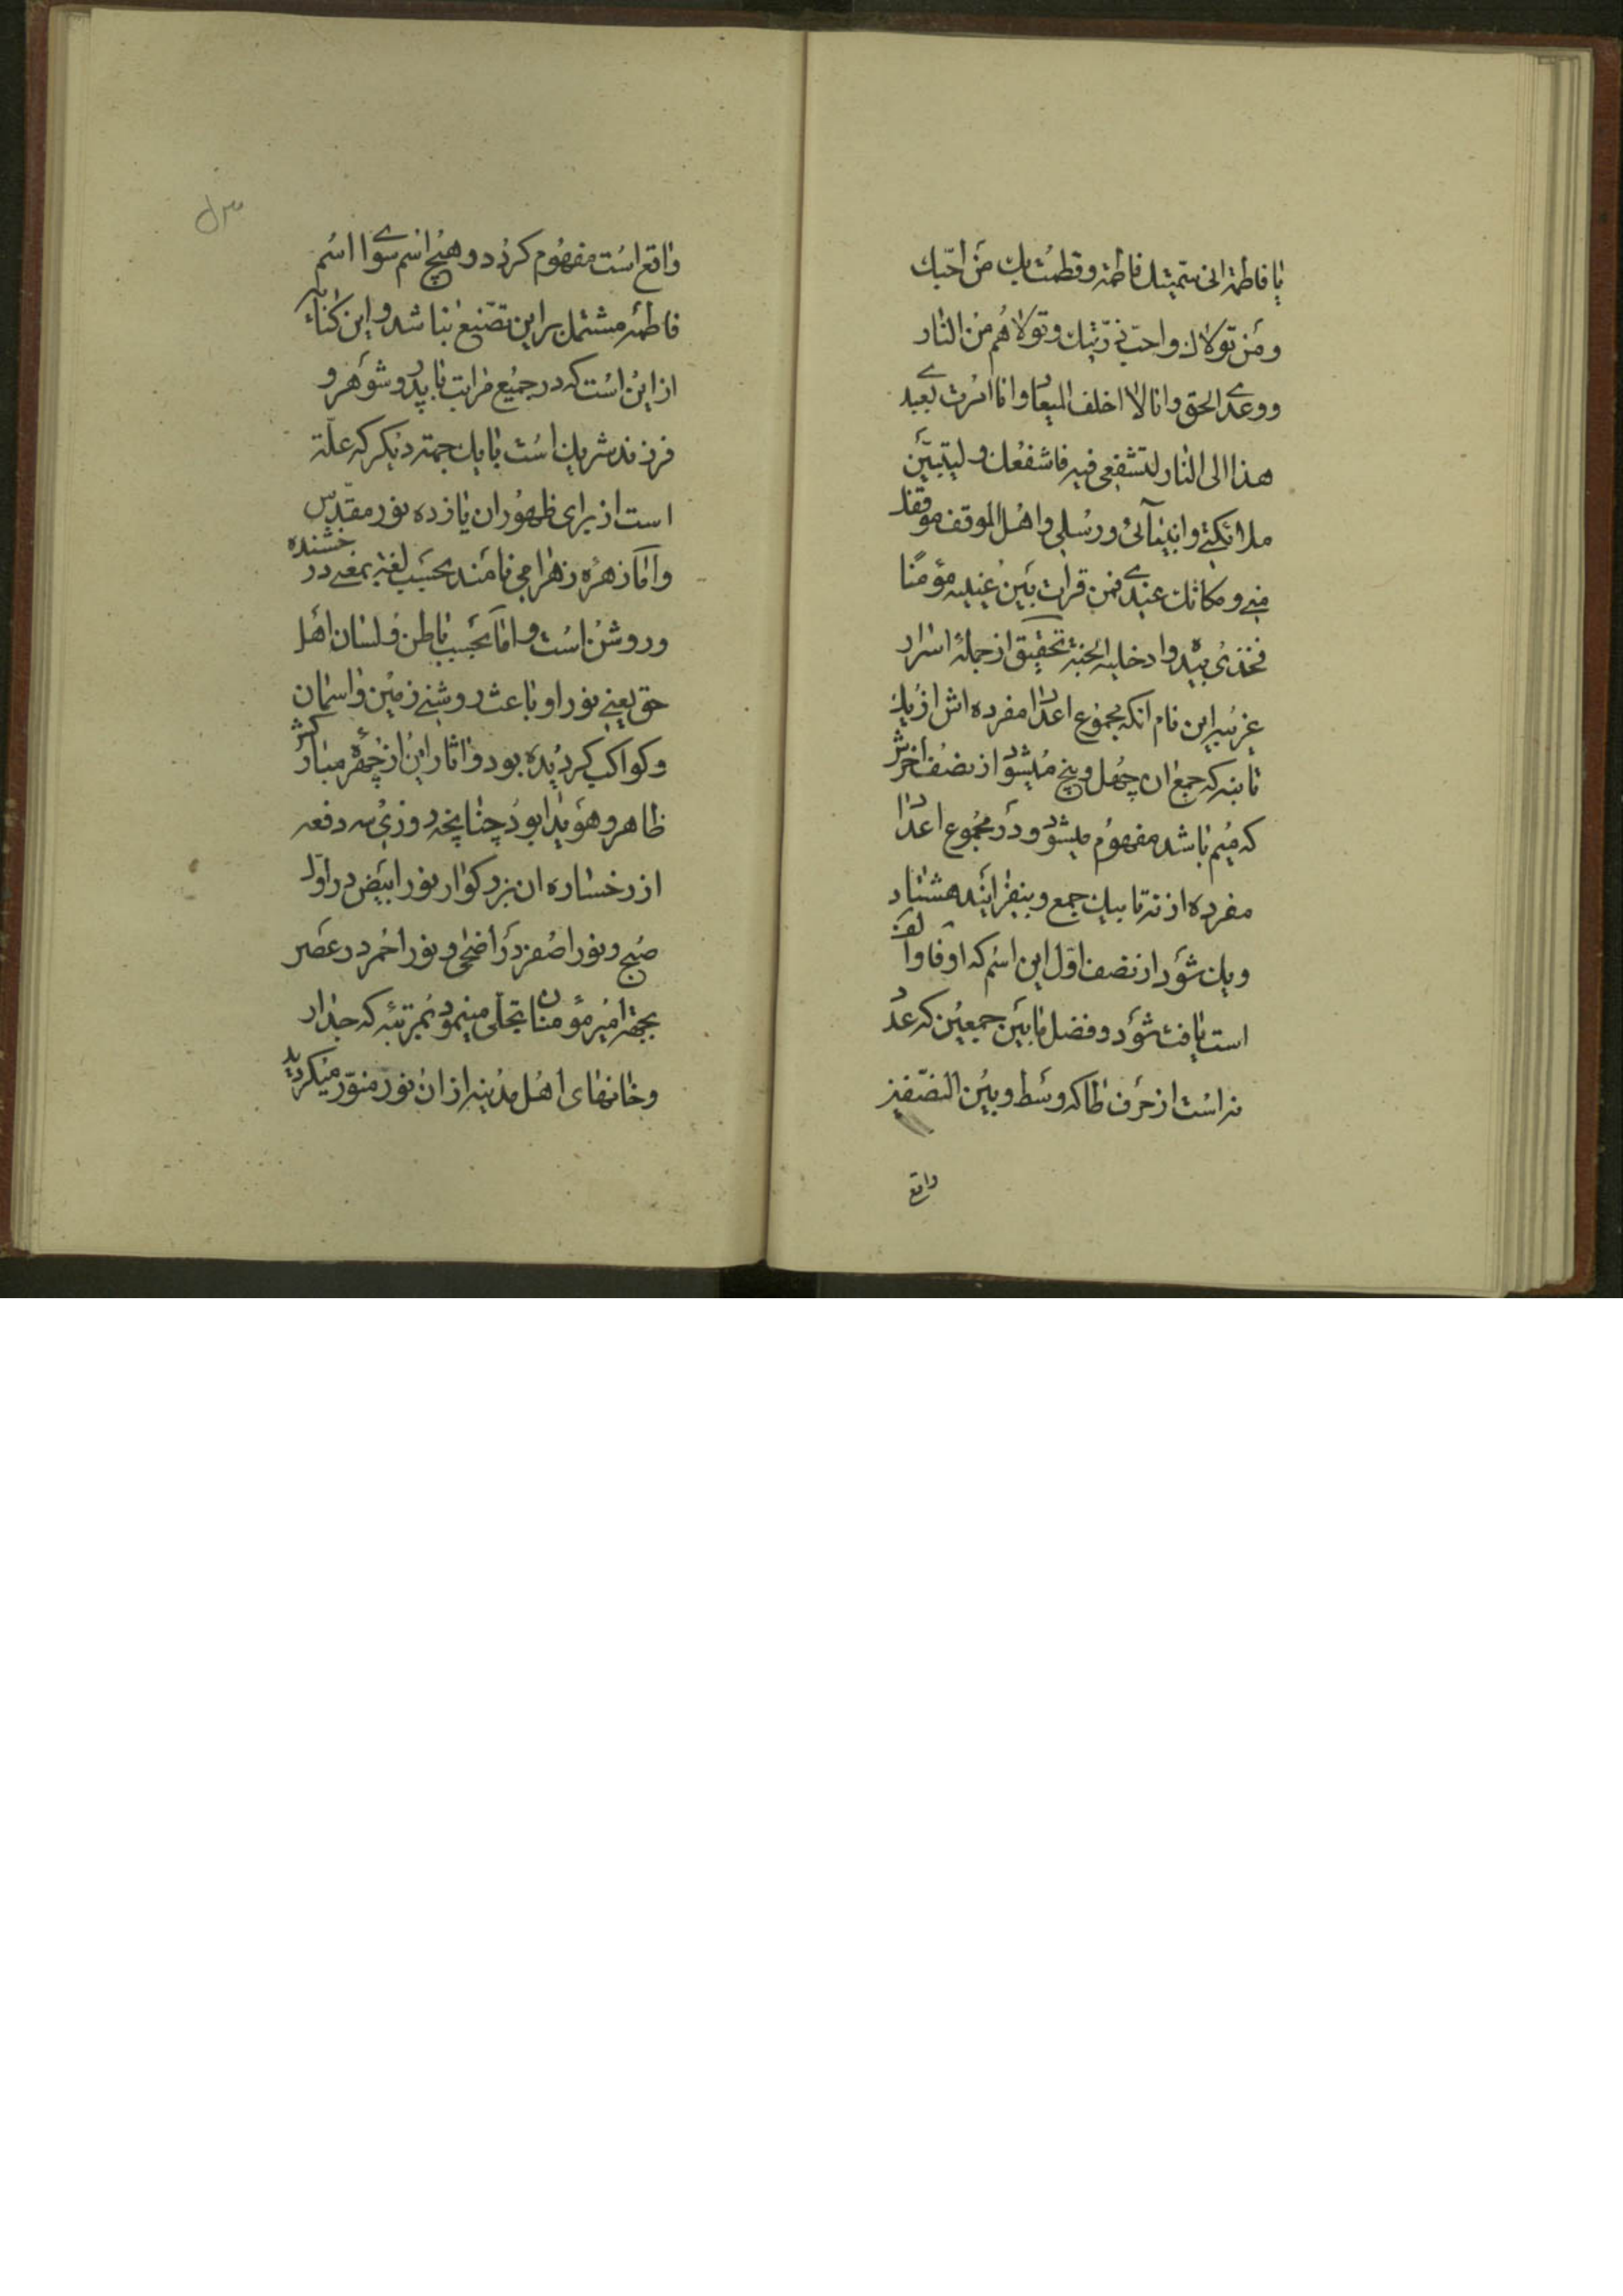 یا فاطمة انی سمّیتك فاطمة و فطمت بك من احبّك
و من تولاك و احب ذرّیتك و تولاهم من النار
و وعدی الحق و انا لا اخلف المیعاد و انا امرت بعبد
هذا الی النار لتشفعی فیه فاشفعك و لیتبیّن
ملائكتی و انبیائی و رسلی و اهل الموقف موقفك
منی و مكانك عندی فمن قرات بین عینیه مؤمنا
فخذی بیده و ادخلیه الجنة تحقیق از جملهٔ اسرار
غریبه این نام انكه مجموع اعداد مفرده اش از یك
تا نه كه جمع ان چهل و پنج میشود از نصف اخرش
كه میم باشد مفهوم میشود و در مجموع اعداد
مفرده از نه تا بیك جمع و بیفزایند هشتاد
و یك شود از نصف اول این اسم كه او فا و الف
است یافت شود و فضل ما بین جمعین كه عدد
نه است از حرف طا كه وسط و بین النصفین
واقع
واقع است مفهوم كردد و هیچ اسم سوای اسم
فاطمه مشتمل بر این تصنیع نباشد و این كنایه
از این است كه در جمیع مراتب با پدر و شوهر و
فرزند شریك است با یك جهة دیكر كه علّة
است از برای ظهور ان یازده نور مقدّس
و امّا زهره زهرا می نامند بحسب لغة بمعنی درخشنده
و روشن است و امّا بحسب باطن و لسان اهل
حق یعنی نور او باعث روشنی زمین و اسمان
و كواكب كردیده بود و اثار این از چهره مباركش
ظاهر و هویدا بود چنانچه روزی سه دفعه
از رخساره ان بزركوار نور ابیض در اوّل
صبح و نور اصفر در اضحی و نور احمر در عصر
بجهة امیر مؤمنان تجلّی مینمود بمرتبه كه جدار
و خانهای اهل مدینه از ان نور منوّر میكردید